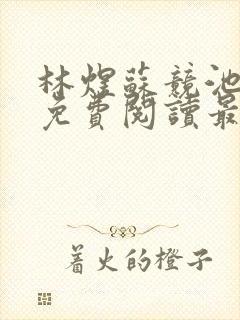 林煜蘇競池
免費閱讀最
着火的橙子